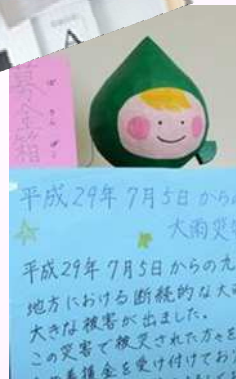 A
募金箱
ぼきんばこ
平成29年7月5日からの
大雨災
平成29年7月5日からの九
地方における断続的な大
大きな被害が出ました。
この災害で被災された方々を
義援金を受け付けてお